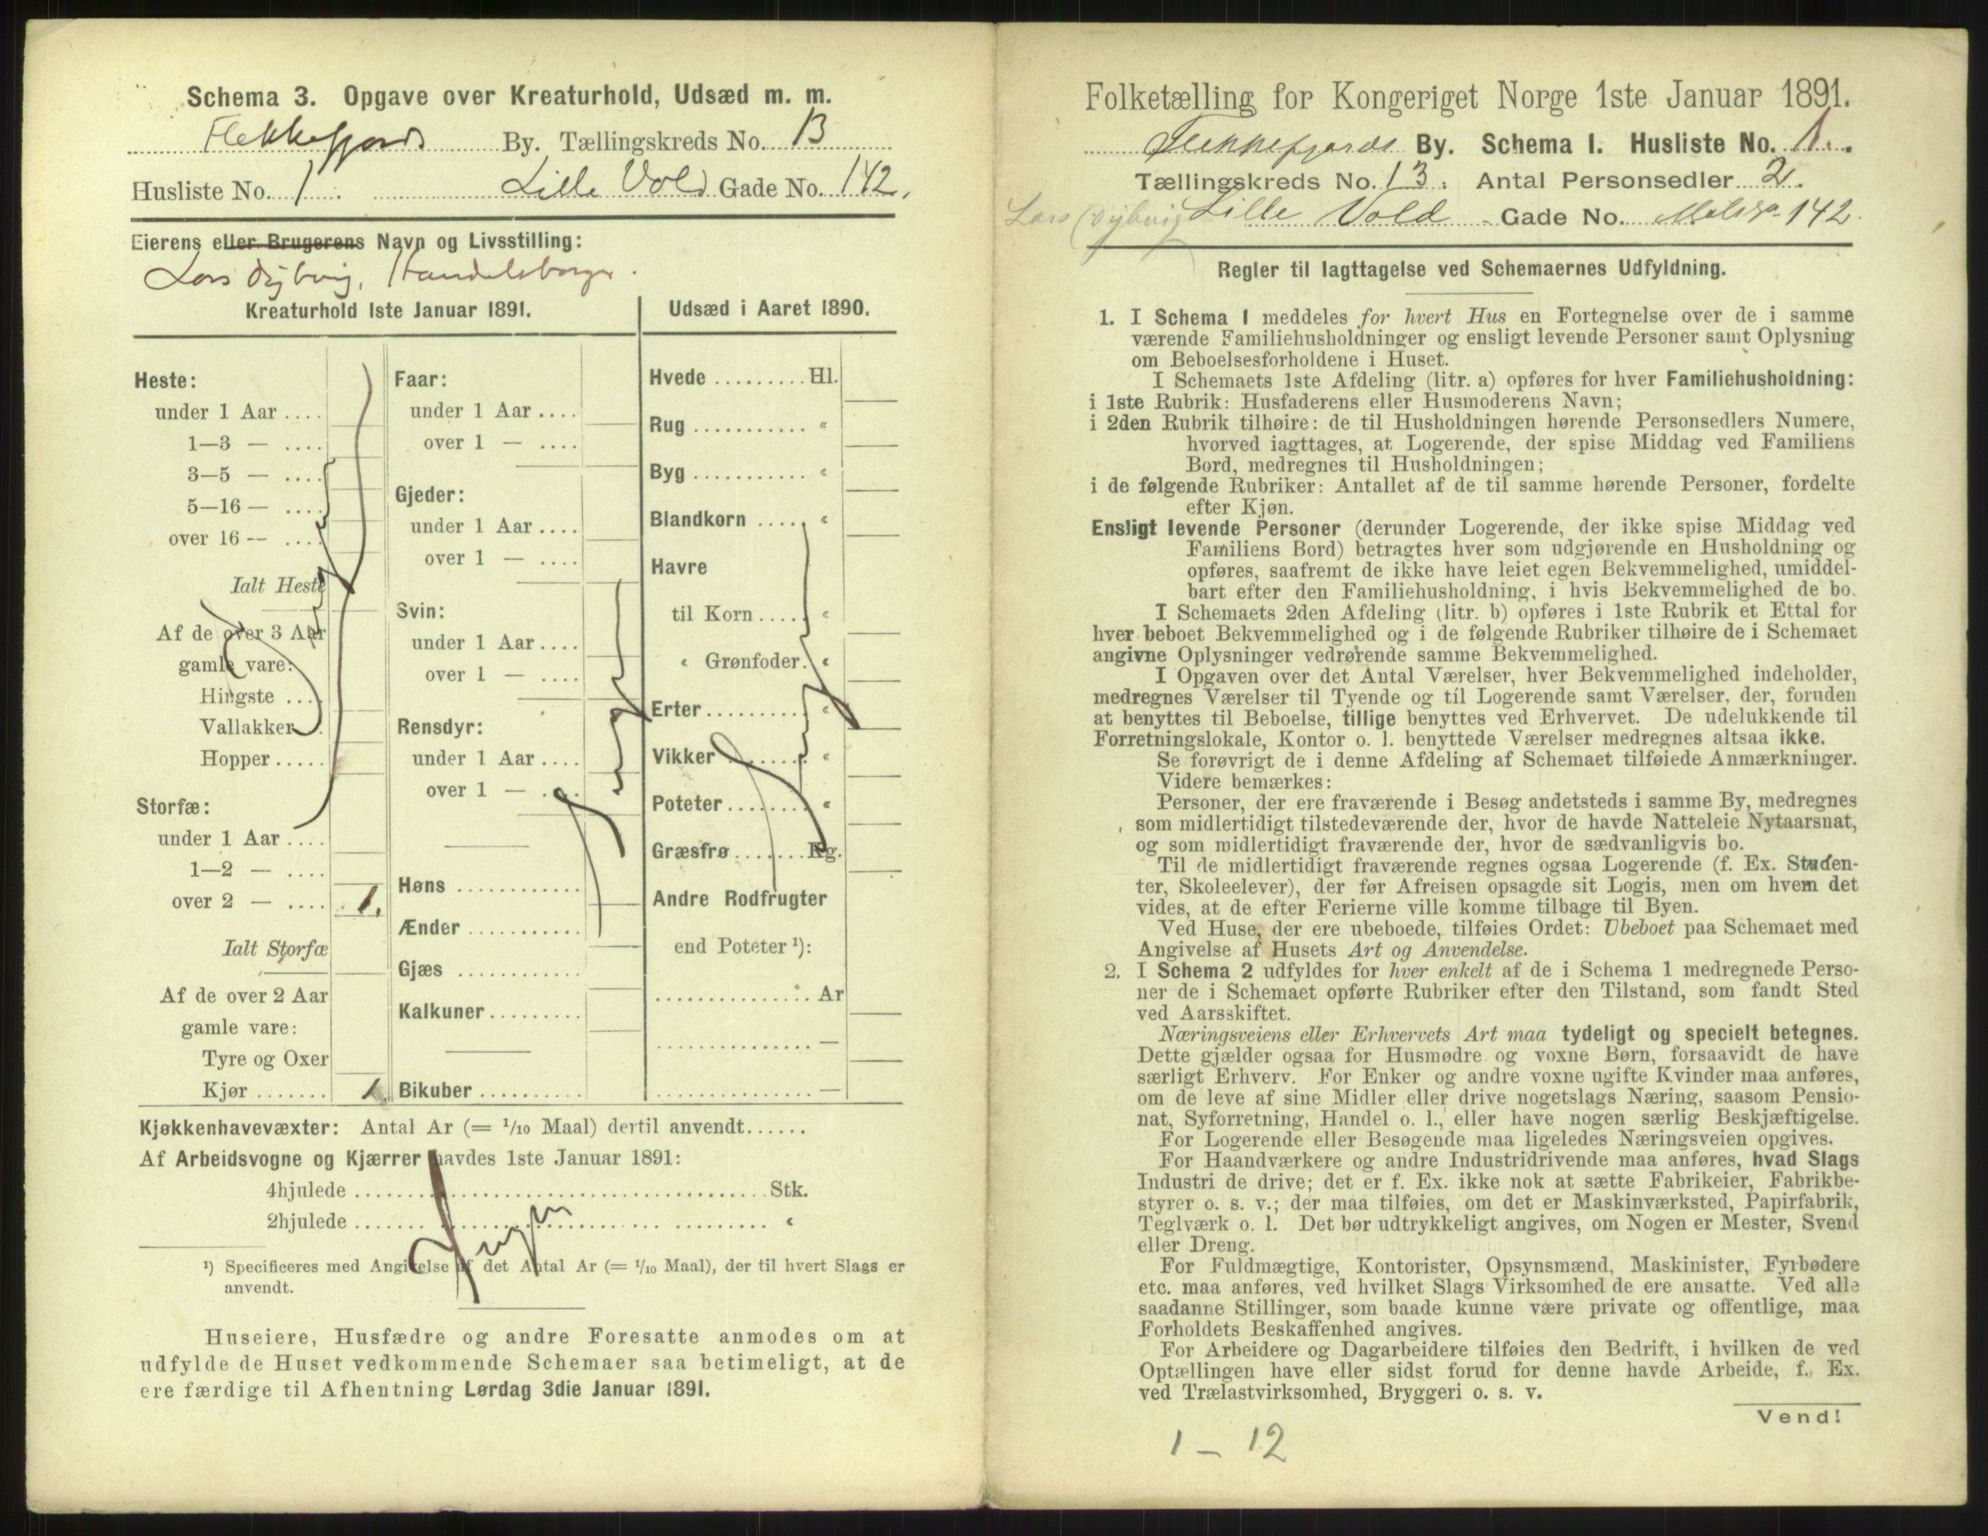 Schema 3. Opgave over Kreaturhold, Udsæd m. m.
Flekkefjords By. Tællingskreds No. 13
Husliste No. 1. Lille Vold Gade No. 142.
Eierens eller Brugerens Navn og Livsstilling:
Lars Dybvig, Handelsborger.
Kreaturhold 1ste Januar 1891.
Heste:
under 1 Aar ....
1—3 — ....
3—5 — ....
5—16 — ....
over 16 — ....
Ialt Heste
Af de over 3 Aar
gamle vare:
Hingste ....
Vallakker .
Hopper .....
Storfæ:
under 1 Aar ....
1—2 — ....
over 2 — .... 1.
Ialt Storfæ
Af de over 2 Aar
gamle vare:
Tyre og Oxer
Kjør ....... 1.
Ingen
Faar:
under 1 Aar ....
over 1 — ....
Gjeder:
under 1 Aar ....
over 1 — ....
Svin:
under 1 Aar ....
over 1 — ....
Rensdyr:
under 1 Aar ....
over 1 — ....
Høns ............
Ænder ...........
Gjæs ............
Kalkuner .........
Bikuber ..........
Ingen
Udsæd i Aaret 1890.
Hvede ......... Hl.
Rug ........... «
Byg ........... «
Blandkorn ..... «
Havre
til Korn ..... «
« Grønfoder. «
Erter .......... «
Vikker ........ «
Poteter ........ «
Græsfrø ....... Kg.
Andre Rodfrugter
end Poteter ¹):
............... Ar
............... —
............... —
Ingen
Kjøkkenhavevæxter: Antal Ar (= 1/10 Maal) dertil anvendt......
Af Arbeidsvogne og Kjærrer havdes 1ste Januar 1891:
4hjulede ........................................ Stk.
2hjulede ........................................ «
Ingen
¹) Specificeres med Angivelse af det Antal Ar (= 1/10 Maal), der til hvert Slags er
anvendt.
Huseiere, Husfædre og andre Foresatte anmodes om at
udfylde de Huset vedkommende Schemaer saa betimeligt, at de
ere færdige til Afhentning Lørdag 3die Januar 1891.
Folketælling for Kongeriget Norge 1ste Januar 1891.
Flekkefjords By. Schema I. Husliste No. 1.
Tællingskreds No. 13. Antal Personsedler 2.
Lars Dybvig Lille Vold Gade No. 142.
Regler til Iagttagelse ved Schemaernes Udfyldning.
1. I Schema 1 meddeles for hvert Hus en Fortegnelse over de i samme
værende Familiehusholdninger og ensligt levende Personer samt Oplysning
om Beboelsesforholdene i Huset.
I Schemaets 1ste Afdeling (litr. a) opføres for hver Familiehusholdning:
i 1ste Rubrik: Husfaderens eller Husmoderens Navn;
i 2den Rubrik tilhøire: de til Husholdningen hørende Personsedlers Numere,
hvorved iagttages, at Logerende, der spise Middag ved Familiens
Bord, medregnes til Husholdningen;
i de følgende Rubriker: Antallet af de til samme hørende Personer, fordelte
efter Kjøn.
Ensligt levende Personer (derunder Logerende, der ikke spise Middag ved
Familiens Bord) betragtes hver som udgjørende en Husholdning og
opføres, saafremt de ikke have leiet egen Bekvemmelighed, umiddel-
bart efter den Familiehusholdning, i hvis Bekvemmelighed de bo.
I Schemaets 2den Afdeling (litr. b) opføres i 1ste Rubrik et Ettal for
hver beboet Bekvemmelighed og i de følgende Rubriker tilhøire de i Schemaet
angivne Oplysninger vedrørende samme Bekvemmelighed.
I Opgaven over det Antal Værelser, hver Bekvemmelighed indeholder,
medregnes Værelser til Tyende og til Logerende samt Værelser, der, foruden
at benyttes til Beboelse, tillige benyttes ved Erhvervet. De udelukkende til
Forretningslokale, Kontor o. l. benyttede Værelser medregnes altsaa ikke.
Se forøvrigt de i denne Afdeling af Schemaet tilføiede Anmærkninger.
Videre bemærkes:
Personer, der ere fraværende i Besøg andetsteds i samme By, medregnes
som midlertidigt tilstedeværende der, hvor de havde Natteleie Nytaarsnat,
og som midlertidigt fraværende der, hvor de sædvanligvis bo.
Til de midlertidigt fraværende regnes ogsaa Logerende (f. Ex. Studen-
ter, Skoleelever), der før Afreisen opsagde sit Logis, men om hvem det
vides, at de efter Ferierne ville komme tilbage til Byen.
Ved Huse, der ere ubeboede, tilføies Ordet: Ubeboet paa Schemaet med
Angivelse af Husets Art og Anvendelse.
2. I Schema 2 udfyldes for hver enkelt af de i Schema 1 medregnede Perso-
ner de i Schemaet opførte Rubriker efter den Tilstand, som fandt Sted
ved Aarsskiftet.
Næringsveiens eller Erhvervets Art maa tydeligt og specielt betegnes.
Dette gjælder ogsaa for Husmødre og voxne Børn, forsaavidt de have
særligt Erhverv. For Enker og andre voxne ugifte Kvinder maa anføres,
om de leve af sine Midler eller drive nogetslags Næring, saasom Pensio-
nat, Syforretning, Handel o. l., eller have nogen særlig Beskjæftigelse.
For Logerende eller Besøgende maa ligeledes Næringsveien opgives.
For Haandværkere og andre Industridrivende maa anføres, hvad Slags
Industri de drive; det er f. Ex. ikke nok at sætte Fabrikeier, Fabrikbe-
styrer o. s. v.; der maa tilføies, om det er Maskinværksted, Papirfabrik,
Teglværk o. l. Det bør udtrykkeligt angives, om Nogen er Mester, Svend
eller Dreng.
For Fuldmægtige, Kontorister, Opsynsmænd, Maskinister, Fyrbødere
etc. maa anføres, ved hvilket Slags Virksomhed de ere ansatte. Ved alle
saadanne Stillinger, som baade kunne være private og offentlige, maa
Forholdets Beskaffenhed angives.
For Arbeidere og Dagarbeidere tilføies den Bedrift, i hvilken de ved
Optællingen have eller sidst forud for denne havde Arbeide, f. Ex.
ved Trælastvirksomhed, Bryggeri o. s. v.
Vend!
1 — 12